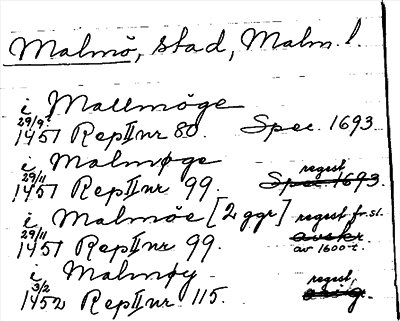 Malmö, stad, Malm. l.
i Mallmöge
29/9? 1451 Rep II nr 80. Spec. 1693.
i Malmøge
29/11 1451 Rep II nr 99. Spec. 1693. regest
i Malmöe [2 ggr] regest fr. sl.
29/11 1451 Rep II nr 99. avskr av 1600-t.
i Malmøy
3/2 1452 Rep II nr 115. regest, orig.